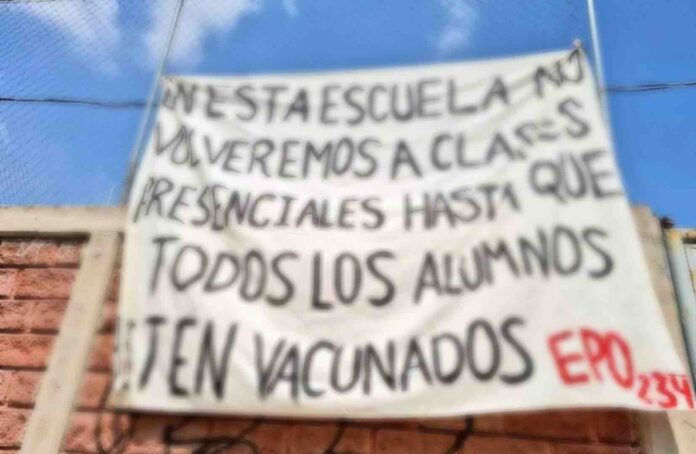 EN ESTA ESCUELA NO
VOLVEREMOS A CLASES
PRESENCIALES HASTA QUE
TODOS LOS ALUMNOS
ESTEN VACUNADOS EPO 234